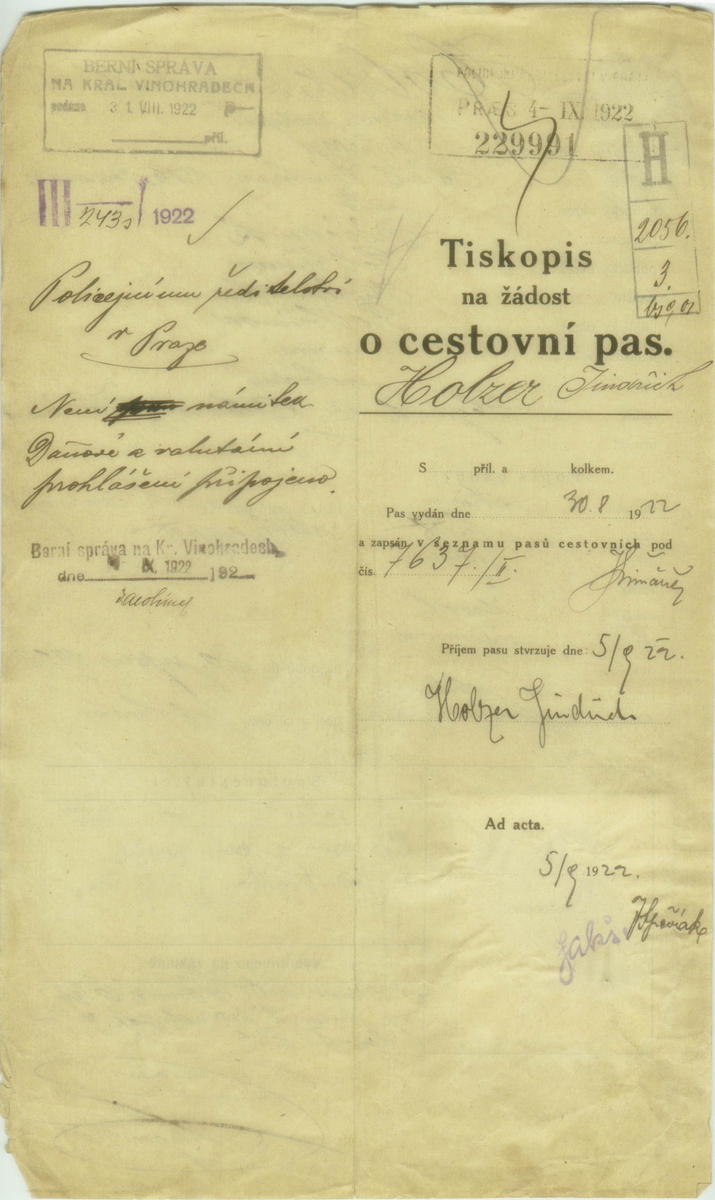 BERNÍ SPRÁVA
NA KRÁL VINOHRADECH
podáno 31. VIII. 1922
příl.
III 243 1922
Policejnímu ředitelství
v Praze
Není námitek
Daňové a valutární
prohlášení připojeno.
Berní správa na Kr. Vinohradech
dne IX. 1922 192
PRAES. 4- IX. 1922
229991
H
2056.
3.
Tiskopis
na žádost
o cestovní pas.
Holzer Jindřich
S příl. a kolkem.
Pas vydán dne 30.8 1922
a zapsán v seznamu pasů cestovních pod
čís. 7637./II.
Příjem pasu stvrzuje dne: 5/9 22.
Holzer Jindřich
Ad acta.
5/9 1922.